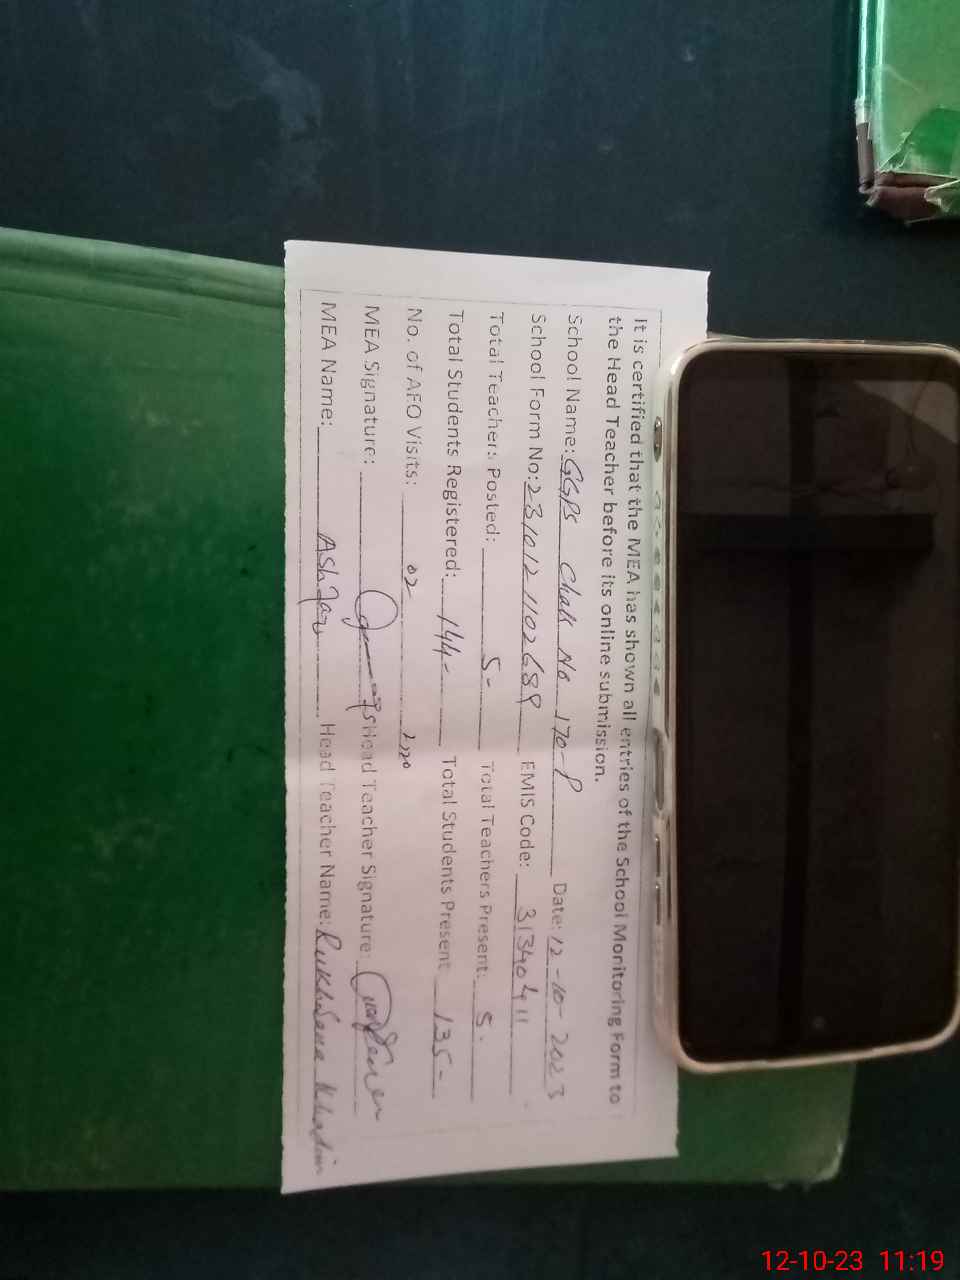 It is certified that the MEA has shown all entries of the School Monitoring Form to
the Head Teacher before its online submission.
School Name: GGPS Chak No 170-P Date: 12-10-2023
School Form No: 2310121102689 EMIS Code: 31340411
Total Teachers Posted: 5- Total Teachers Present: 5.
Total Students Registered: 144- Total Students Present 135-
No. of AEO Visits: 02
MEA Signature: Head Teacher Signature:
MEA Name: Ashfaq Head Teacher Name: Rukhsana Khadim
12-10-23 11:19